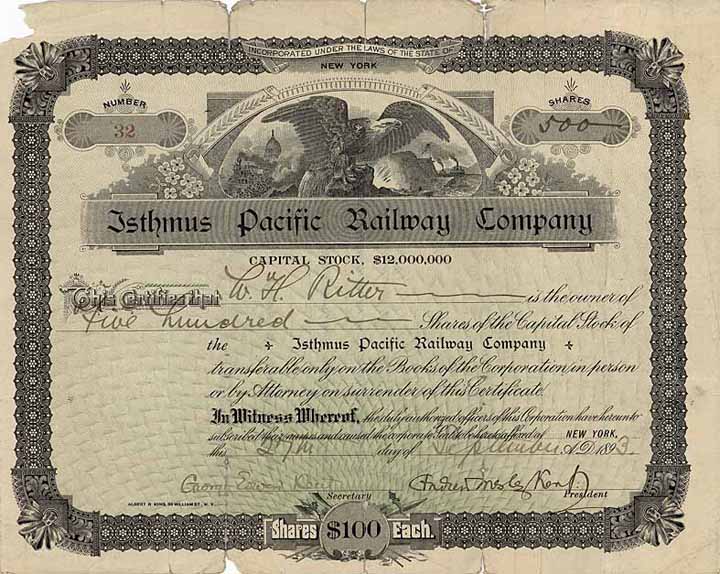 INCORPORATED UNDER THE LAWS OF THE STATE OF
NEW YORK
NUMBER
32
SHARES
500
Isthmus Pacific Railway Company
CAPITAL STOCK, $12,000,000
This Certifies that W. H. Ritter is the owner of
five hundred Shares of the Capital Stock of
the Isthmus Pacific Railway Company
transferable only on the Books of the Corporation in person
or by Attorney on surrender of this Certificate.
In Witness Whereof, the duly authorized officers of this Corporation have hereunto
subscribed their names and caused the corporate Seal to be hereto affixed at NEW YORK,
this day of September A.D. 1893.
George Edward Kent
Secretary
President
ALBERT B. KING, 89 WILLIAM ST., N.Y.
Shares $100 Each.